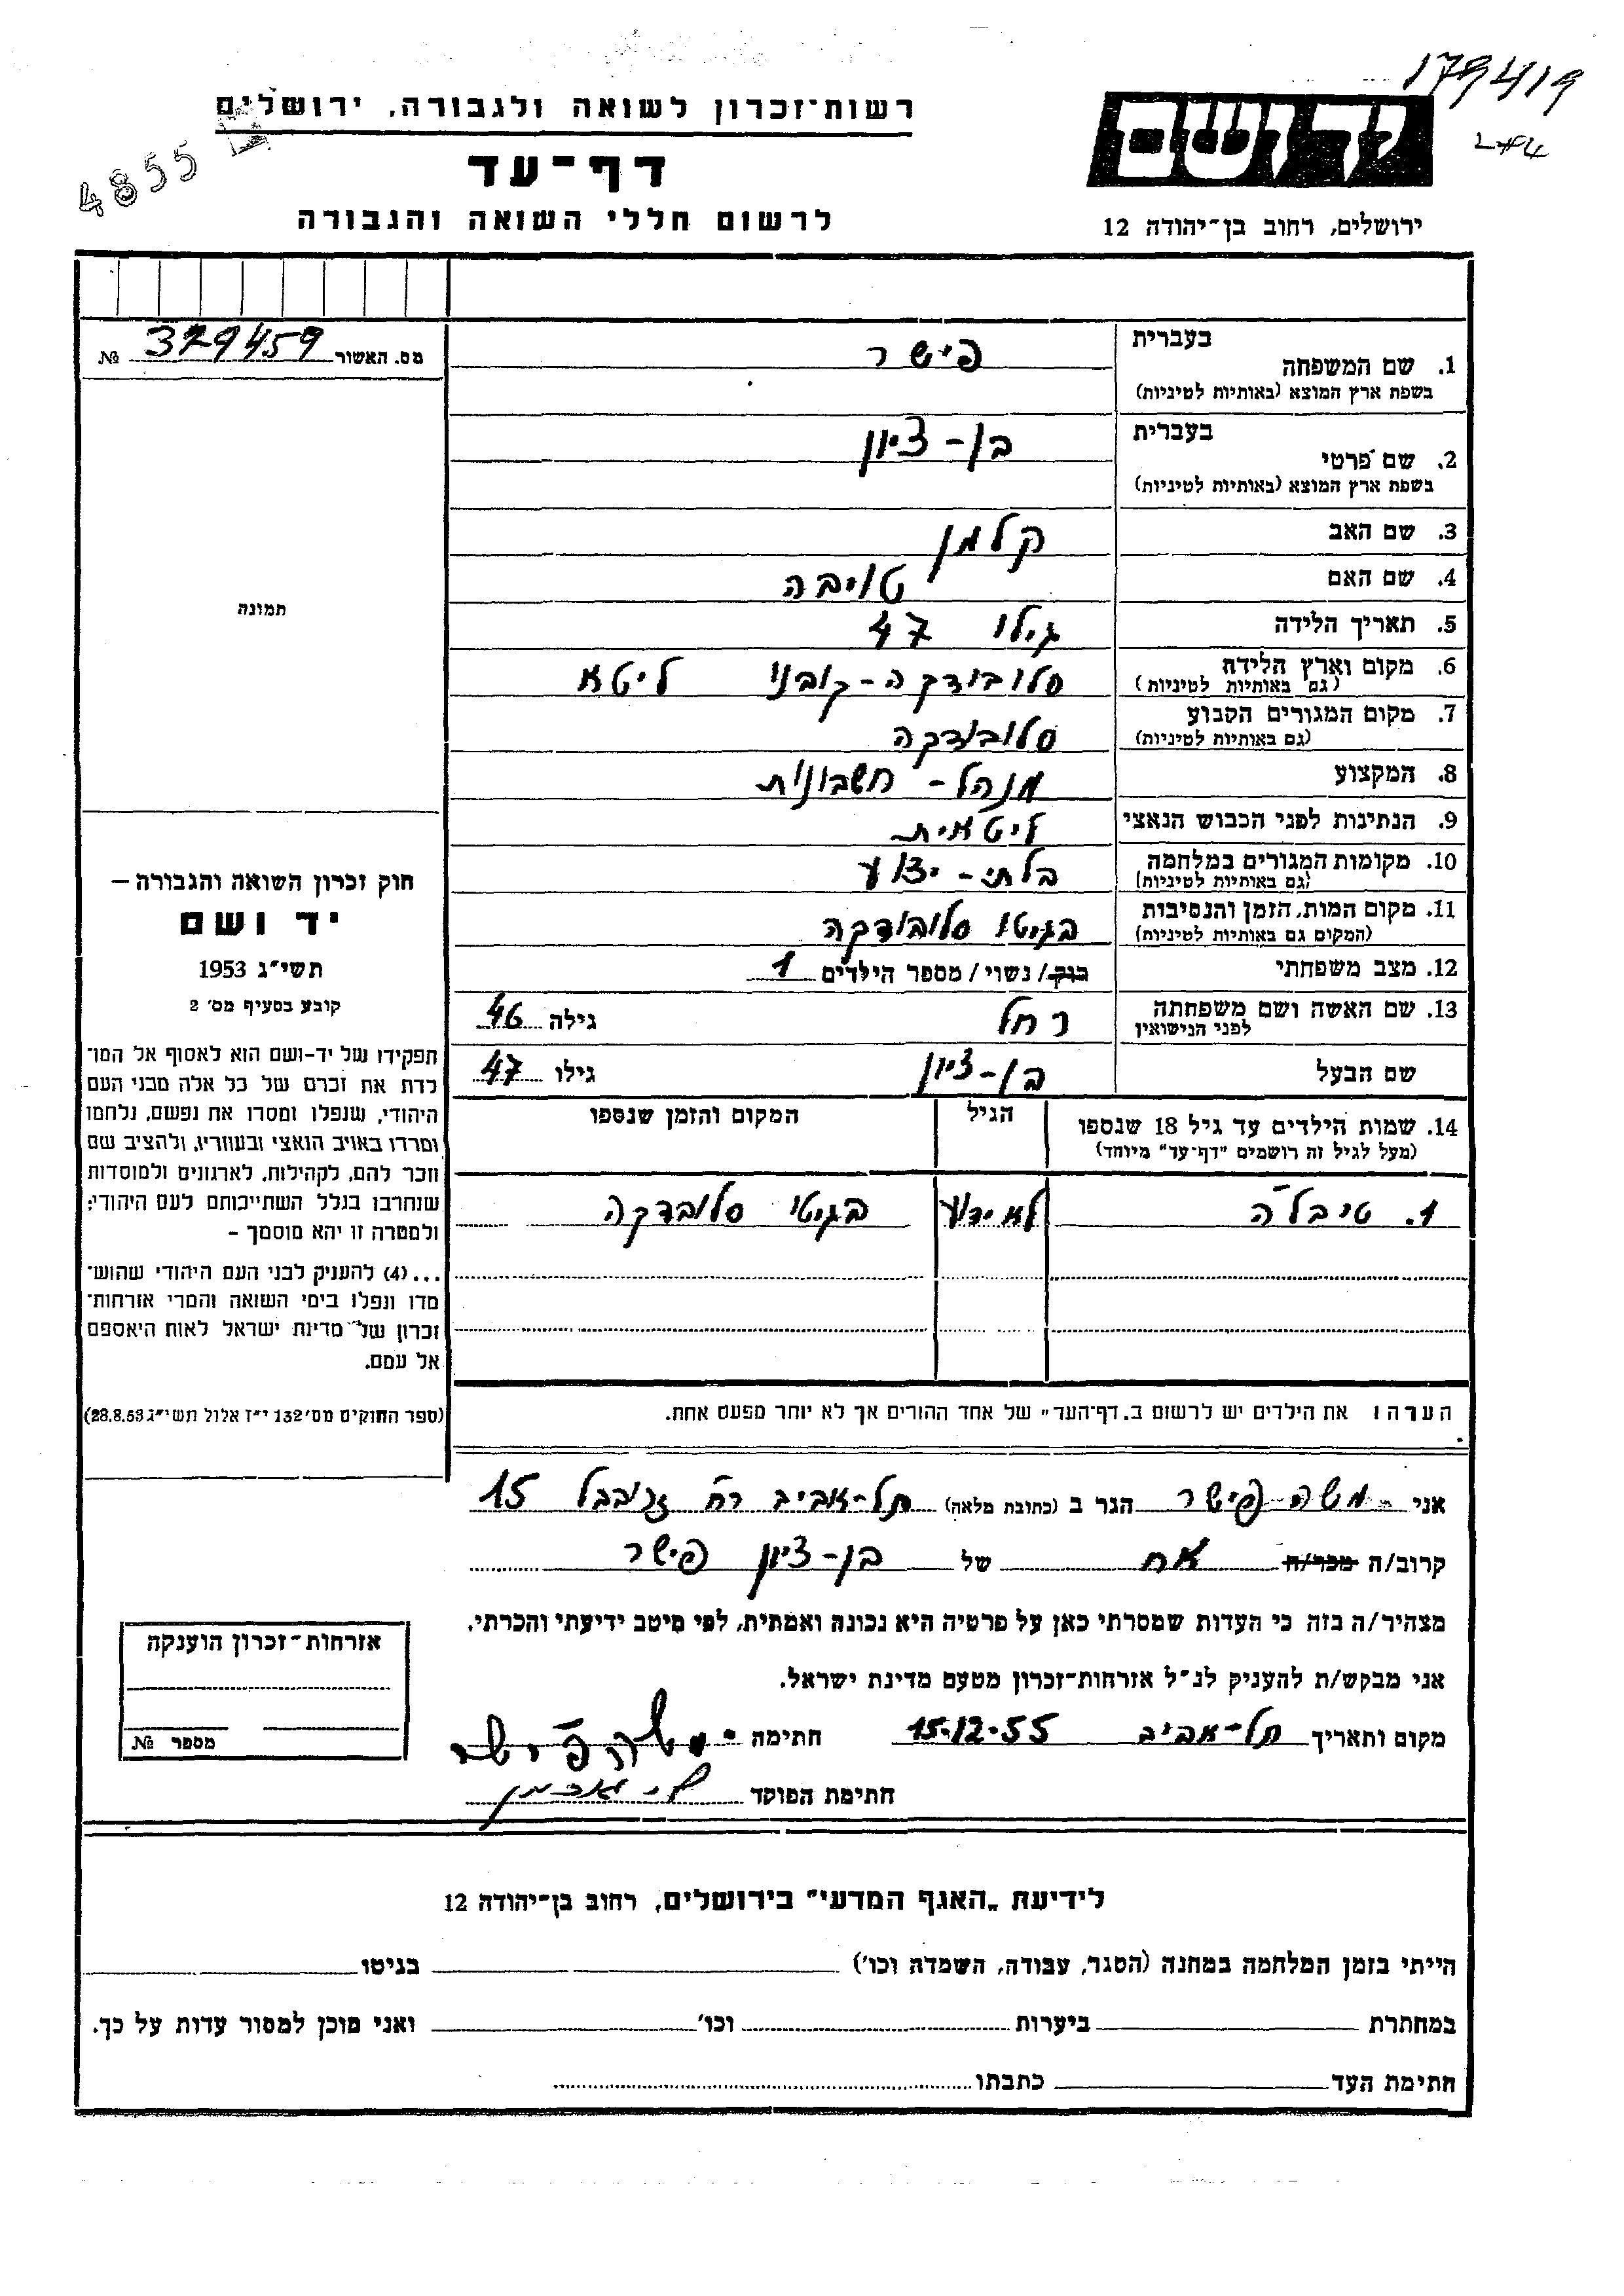 179419
רשות־זכרון לשואה ולגבורה, ירושלים
יד ושם
4855
דף־עד
לרשום חללי השואה והגבורה
ירושלים, רחוב בן־יהודה 12
מס. האשור 329459 №
1. שם המשפחה בעברית פישר
בשפת ארץ המוצא (באותיות לטיניות)
2. שם פרטי בעברית בן-ציון
בשפת ארץ המוצא (באותיות לטיניות)
3. שם האב קלמן
4. שם האם טויבה
5. תאריך הלידה גילו 47
6. מקום וארץ הלידה סלובודקה-קובנו ליטא
(גם באותיות לטיניות)
7. מקום המגורים הקבוע סלובודקה
(גם באותיות לטיניות)
8. המקצוע מנהל-חשבונות
9. הנתינות לפני הכבוש הנאצי ליטאית
10. מקומות המגורים במלחמה בלתי-ידוע
(גם באותיות לטיניות)
11. מקום המות, הזמן והנסיבות בגיטו סלובודקה
(המקום גם באותיות לטיניות)
12. מצב משפחתי רווק/ נשוי / מספר הילדים 1
13. שם האשה ושם משפחתה רחל גילה 46
לפני הנישואין
שם הבעל בן-ציון גילו 47
14. שמות הילדים עד גיל 18 שנספו הגיל המקום והזמן שנספו
(מעל לגיל זה רושמים "דף־עד" מיוחד)
1. טיבל'ה לא ידוע בגיטו סלובדקה
הערה: את הילדים יש לרשום ב„דף־העד" של אחד ההורים אך לא יותר מפעם אחת.
תמונה
חוק זכרון השואה והגבורה —
יד ושם
תשי״ג 1953
קובע בסעיף מס׳ 2
תפקידו של יד-ושם הוא לאסוף אל המו־
לדת את זכרם של כל אלה מבני העם
היהודי, שנפלו ומסרו את נפשם, נלחמו
ומרדו באויב הנאצי ובעוזריו, ולהציב שם
וזכר להם, לקהילות, לארגונים ולמוסדות
שנחרבו בגלל השתייכותם לעם היהודי;
ולמטרה זו יהא מוסמך –
...(4) להעניק לבני העם היהודי שהוש־
מדו ונפלו בימי השואה והמרי אזרחות־
זכרון של מדינת ישראל לאות היאספם
אל עמם.
(ספר החוקים מס׳ 132 י״ז אלול תשי״ג 28.8.53)
אני משה פישר הגר ב (כתובת מלאה) תל-אביב רח' זרובבל 15
קרוב/ה מכר/ה אח של בן-ציון פישר
מצהיר/ה בזה כי העדות שמסרתי כאן על פרטיה היא נכונה ואמתית, לפי מיטב ידיעתי והכרתי.
אני מבקש/ת להעניק לנ״ל אזרחות-זכרון מטעם מדינת ישראל.
מקום ותאריך תל-אביב 15-12-55 חתימה משה פישר
חתימת הפוקד
אזרחות־זכרון הוענקה
מספר №
לידיעת „האגף המדעי" בירושלים, רחוב בן־יהודה 12
הייתי בזמן המלחמה במחנה (הסגר, עבודה, השמדה וכו׳) בגיטו
במחתרת ביערות וכו׳ ואני מוכן למסור עדות על כך.
חתימת העד כתבתו